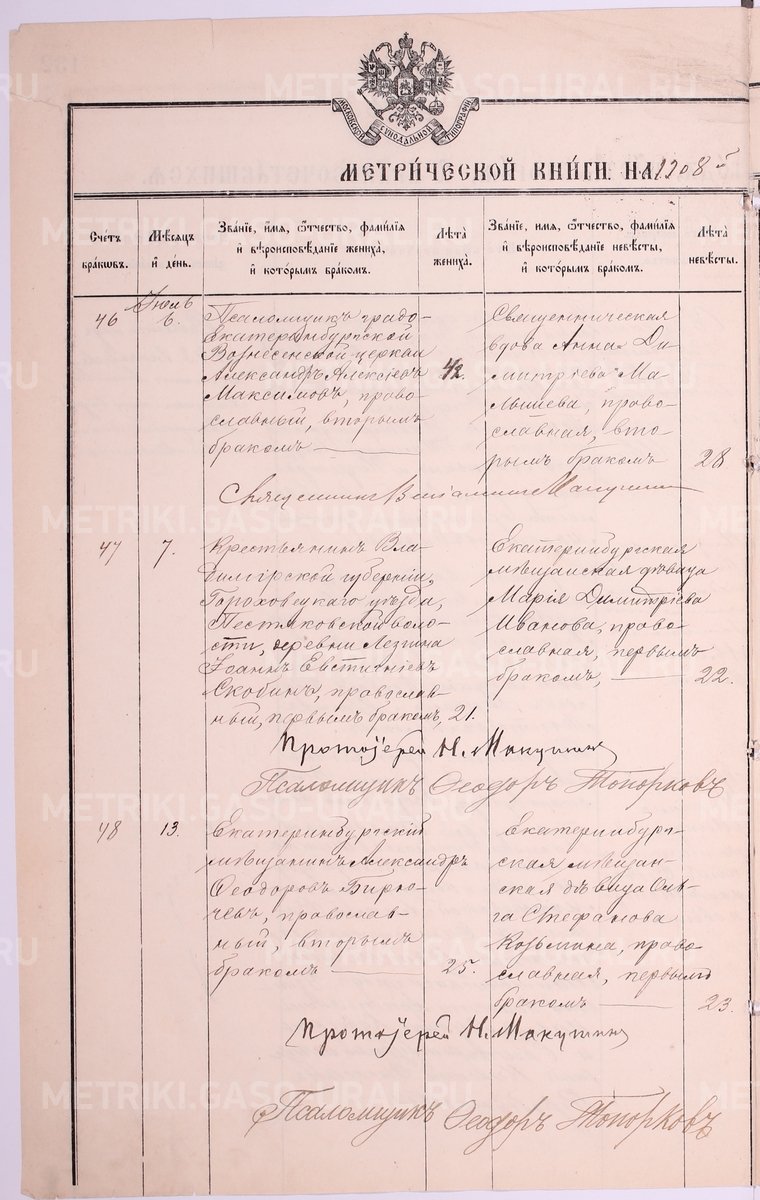 МОСКОВСКОЙ СѴНОДАЛЬНОЙ ТИПОГРАФІИ
МЕТРИ́ЧЕСКОЙ КНИ́ГИ НА 1908 г.
Сче́тъ бра́кѡвъ.
Мѣ́сяцъ и҆ де́нь.
Зва́нїе, и҆́мя, ѻ҆́тчество, фами́лїя и҆ вѣроисповѣ́данїе жениха̀, и҆ кото́рымъ бра́комъ.
Лѣ́та жениха̀.
Зва́нїе, и҆́мя, ѻ҆́тчество, фами́лїя и҆ вѣроисповѣ́данїе невѣ́сты, и҆ кото́рымъ бра́комъ.
Лѣ́та невѣ́сты.
46
Іюль
6.
Псаломщикъ градо-
Екатеринбургской
Вознесенской церкви
Александръ Алексіевъ
Максимовъ, право-
славный, вторымъ
бракомъ
42.
Священническая
вдова Анна Ди-
митріева Ма-
лышева, право-
славная, вто-
рымъ бракомъ
28
Священникъ
47
7.
Крестьянинъ Вла-
димірской губерніи,
Гороховецкаго уѣзда,
Пестяковской воло-
сти, деревни Лезгина
Іоаннъ Евстигніевъ
Скобинъ, православ-
ный, первымъ бракомъ,
21.
Екатеринбургская
мѣщанская дѣвица
Марія Димитріева
Иванова, право-
славная, первымъ
бракомъ,
22.
Протоіерей Н. Макушинъ
Псаломщикъ Ѳеодоръ Топорковъ
48
13.
Екатеринбургскій
мѣщанинъ Александръ
Ѳеодоровъ Бирю-
чевъ, православ-
ный, вторымъ
бракомъ
25.
Екатеринбург-
ская мѣщан-
ская дѣвица Оль-
га Стефанова
Козьмина, право-
славная, первымъ
бракомъ
23.
Протоіерей Н. Макушинъ
Псаломщикъ Ѳеодоръ Топорковъ
METRIKI.GASO-URAL.RU